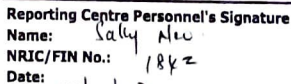 Reporting Centre Personnel's Signature
Name: Sally New
NRIC/FIN No.: 1842
Date: